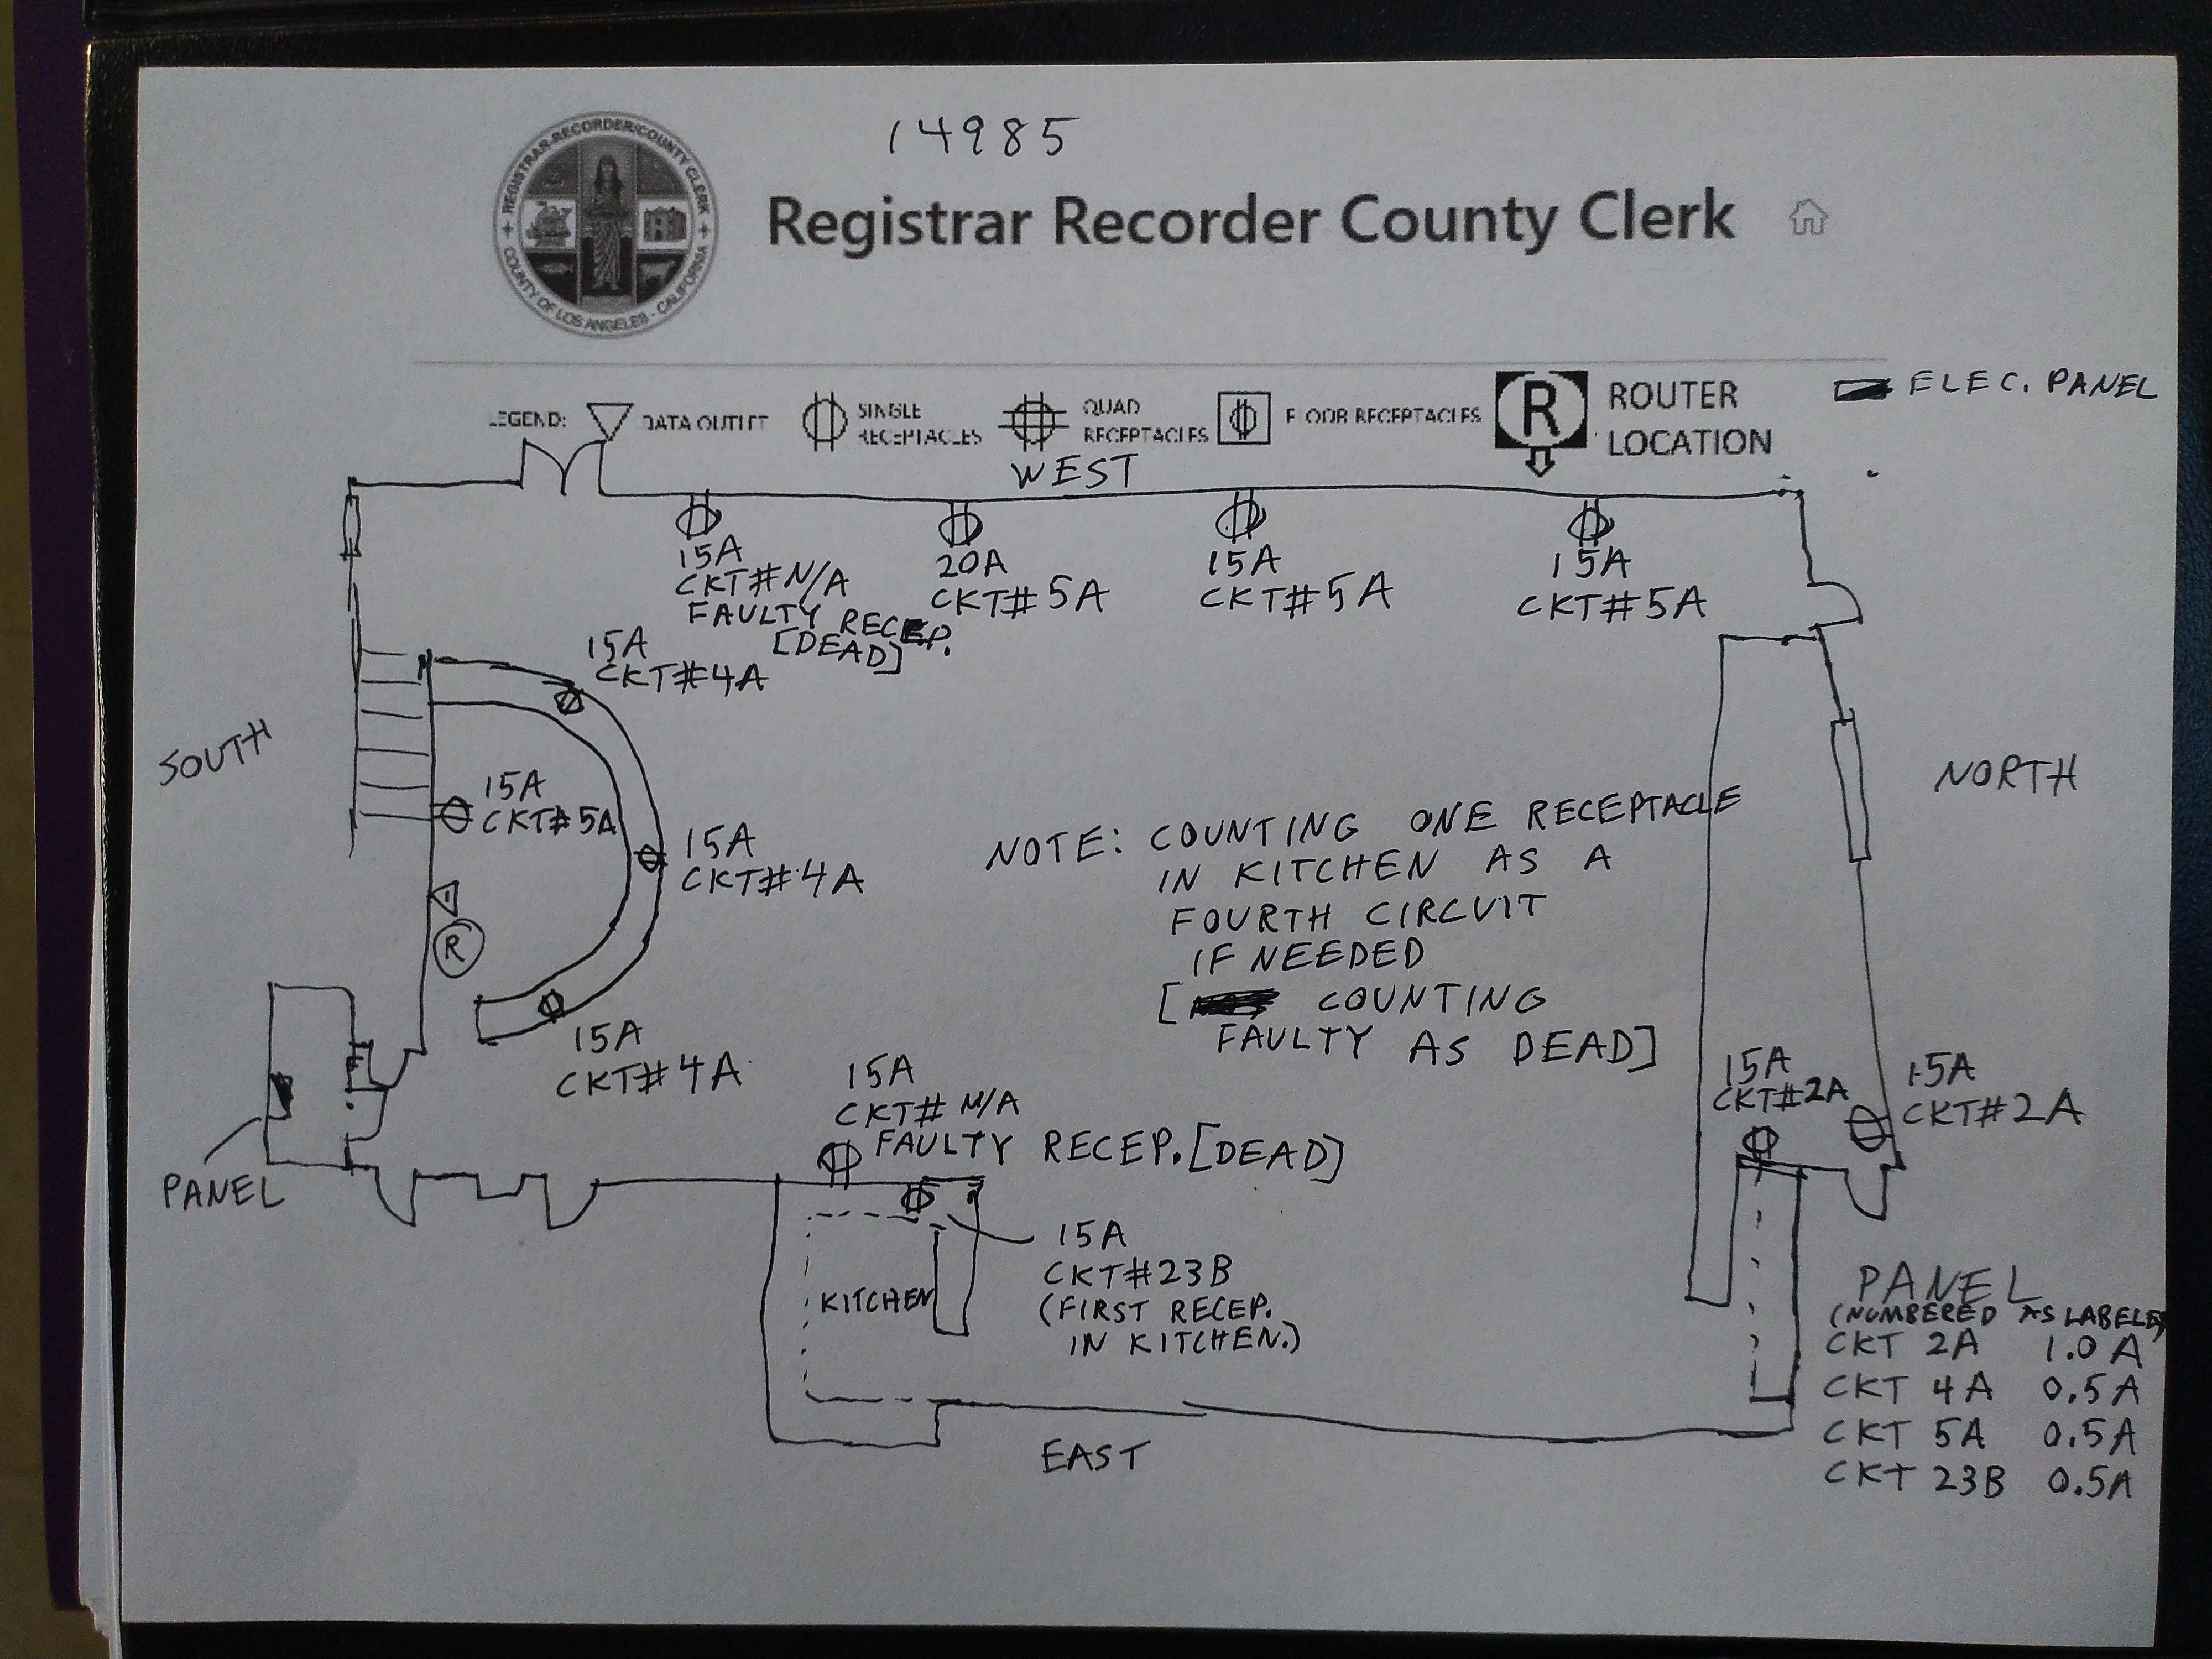 14985
REGISTRAR-RECORDER/COUNTY CLERK
COUNTY OF LOS ANGELES - CALIFORNIA
Registrar Recorder County Clerk
ELEC. PANEL
LEGEND:
DATA OUTLET
SINGLE
RECEPTACLES
QUAD
RECEPTACLES
FLOOR RECEPTACLES
R
ROUTER
LOCATION
WEST
15A
CKT# N/A
FAULTY RECEP.
[DEAD]
20A
CKT# 5A
15A
CKT# 5A
15A
CKT# 5A
15A
CKT# 4A
SOUTH
15A
CKT# 5A
15A
CKT# 4A
R
15A
CKT# 4A
NOTE: COUNTING ONE RECEPTACLE
IN KITCHEN AS A
FOURTH CIRCUIT
IF NEEDED
[ COUNTING
FAULTY AS DEAD]
NORTH
15A
CKT# 2A
15A
CKT# 2A
PANEL
15A
CKT# N/A
FAULTY RECEP. [DEAD]
KITCHEN
15A
CKT# 23B
(FIRST RECEP.
IN KITCHEN.)
EAST
PANEL
(NUMBERED AS LABELED)
CKT 2A 1.0 A
CKT 4A 0.5A
CKT 5A 0.5A
CKT 23B 0.5A